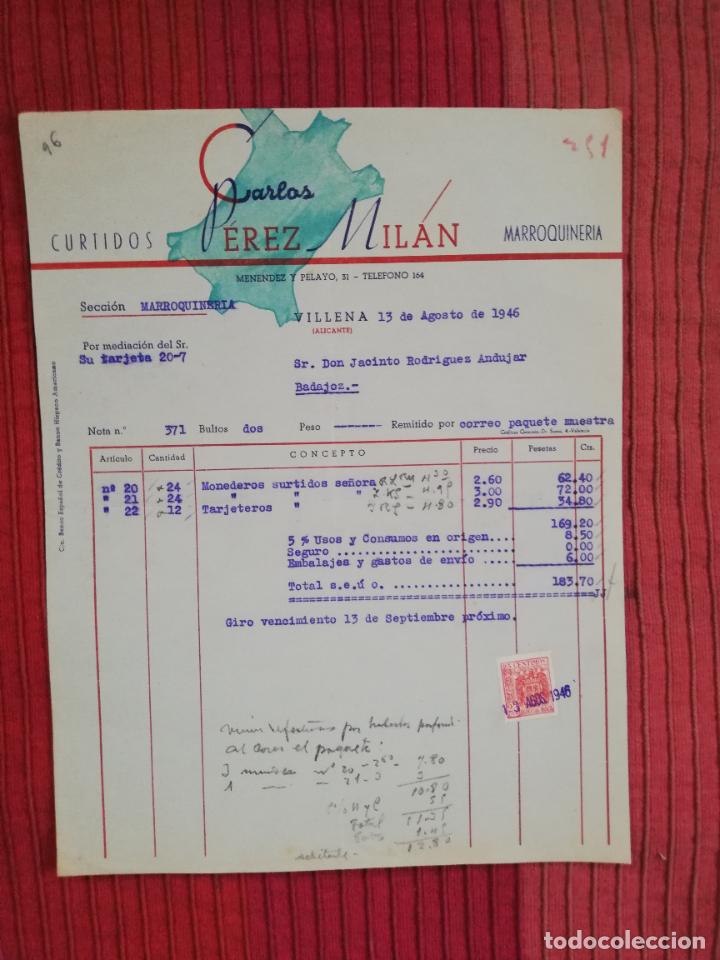 96
Carlos
CURTIDOS PÉREZ MILÁN MARROQUINERIA
MENENDEZ Y PELAYO, 31 - TELEFONO 164
Sección MARROQUINERIA
VILLENA 13 de Agosto de 1946
(ALICANTE)
Por mediación del Sr.
Su tarjeta 20-7
Sr. Don Jacinto Rodriguez Andujar
Badajoz.-
Nota n.° 371 Bultos dos Peso ------ Remitido por correo paquete muestra
Artículo Cantidad CONCEPTO Precio Pesetas Cts.
nº 20 24 Monederos surtidos señora 2.60 62.40
" 21 24 " " " 3.00 72.00
" 22 12 Tarjeteros " 2.90 34.80
169.20
5 % Usos y Consumos en origen... 8.50
Seguro .................... 0.00
Embalajes y gastos de envío .... 6.00
Total s.e.ú o. ................ 183.70
JJ
Giro vencimiento 13 de Septiembre próximo.
13 AGOS 1946
por haberlos
al el paquete
3 nº 20 7.80
1 21 - 3 3
10.80
Total
12.80
Cts. Banco Español de Crédito y Banco Hispano Americano
todocoleccion